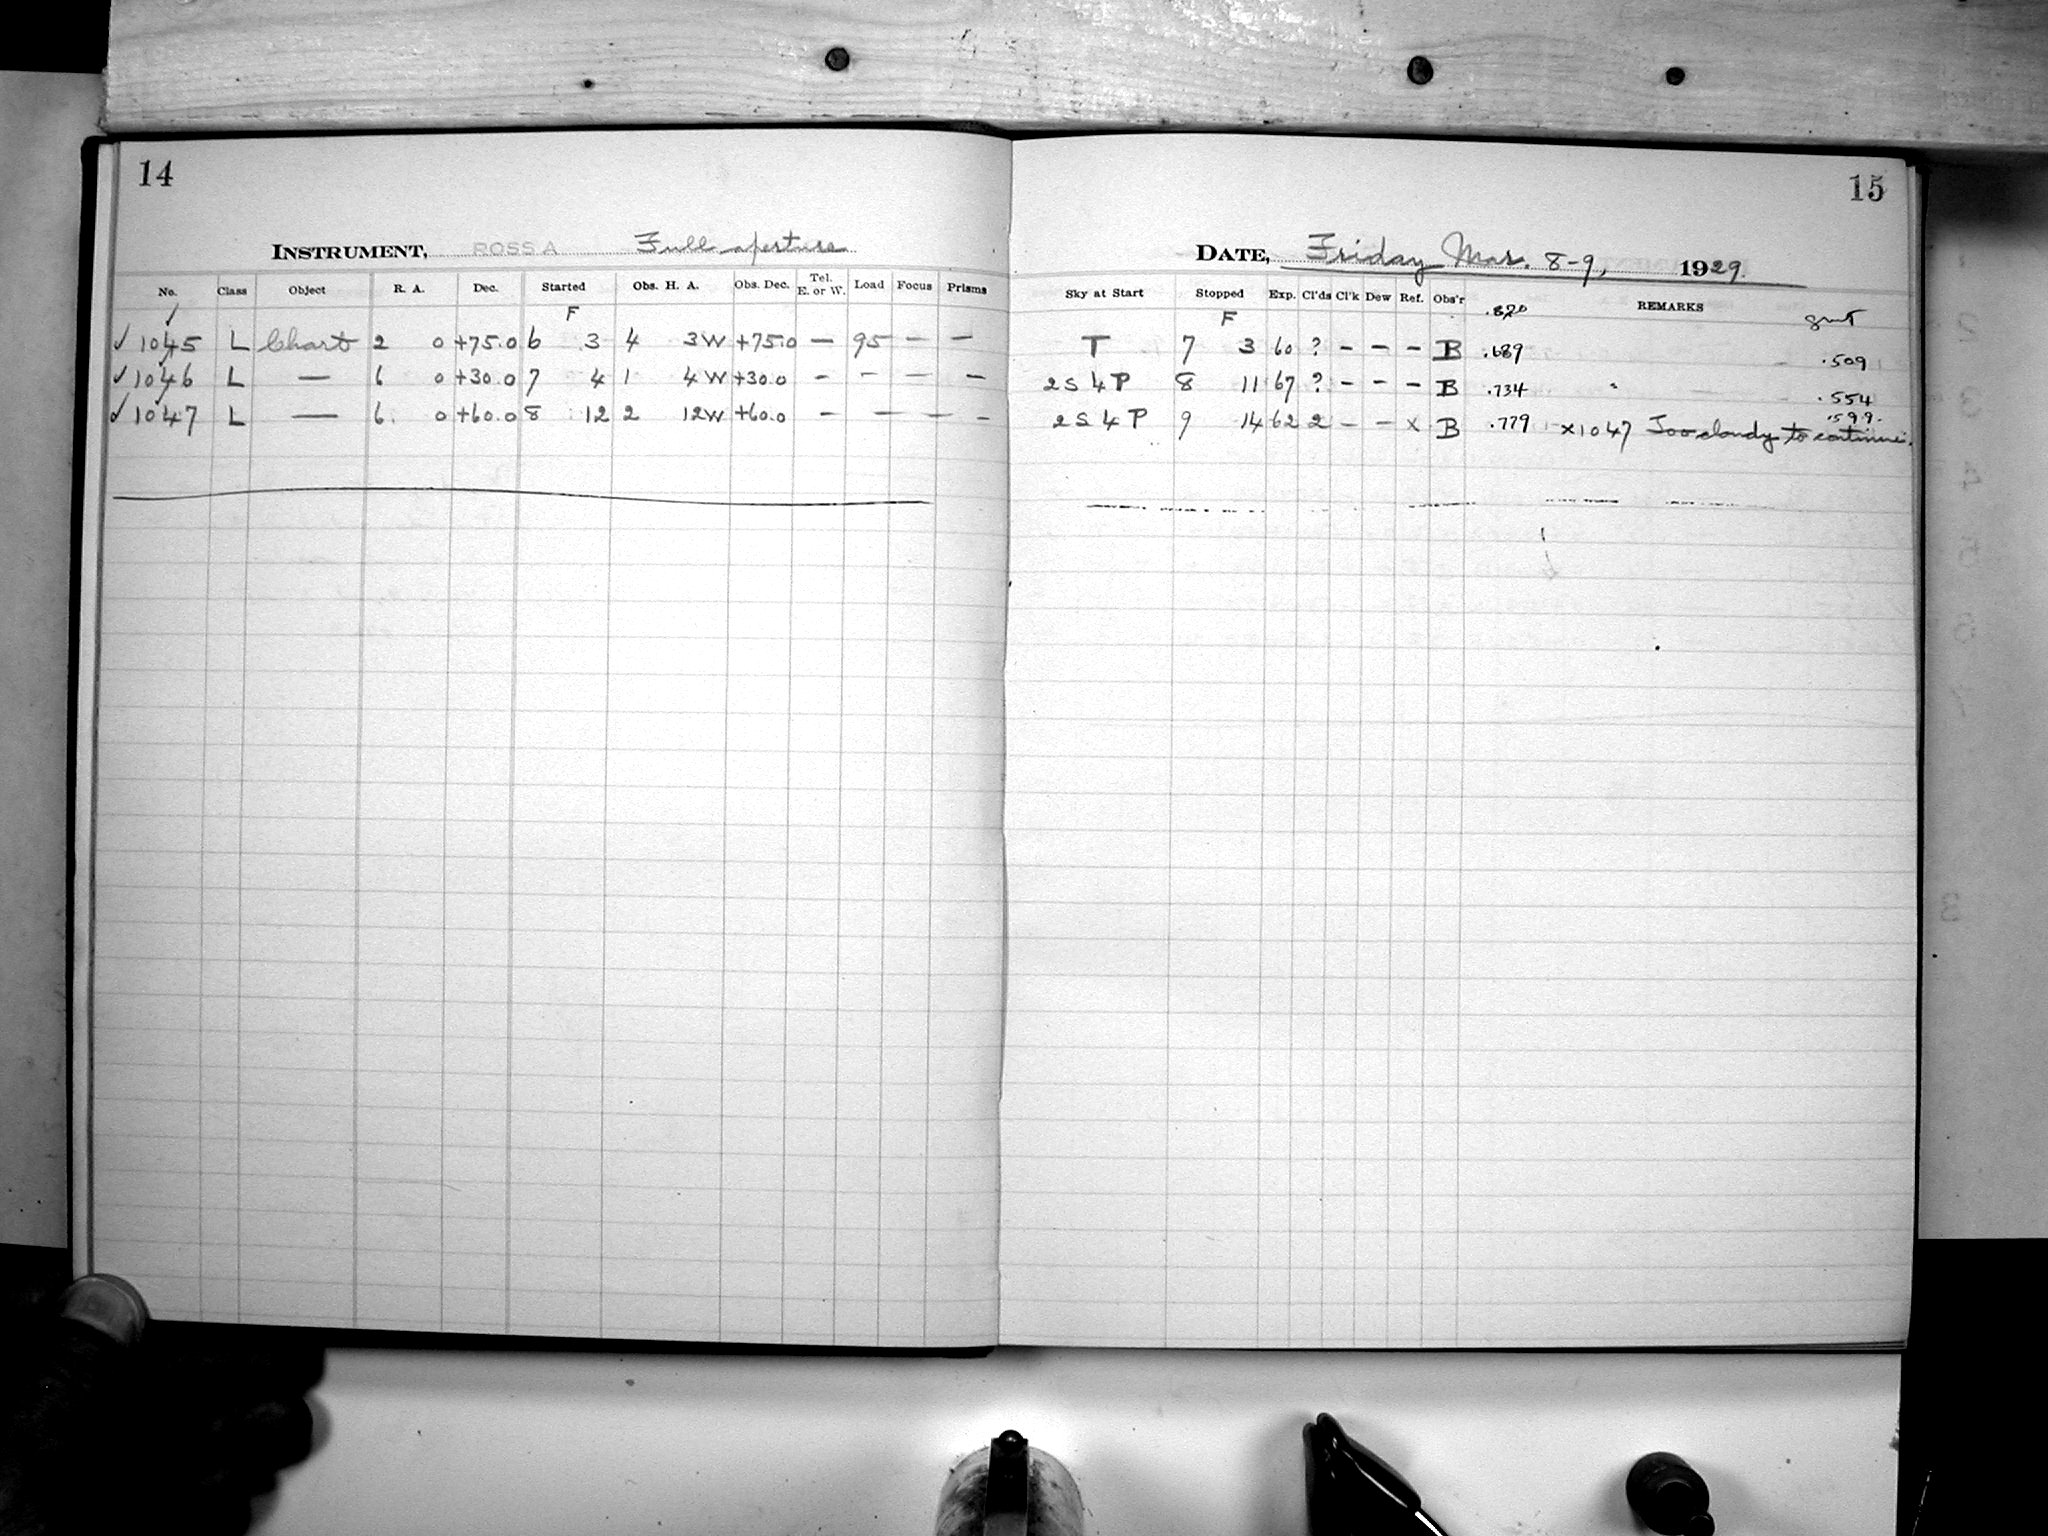 14
INSTRUMENT, ROSS A Full aperture
No. Class Object R. A. Dec. Started Obs. H. A. Obs. Dec. Tel. E. or W. Load Focus Prisms
F
✓ 1045 L Chart 2 0 +75.0 6 3 4 3W +75.0 — 95 — —
✓ 1046 L — 6 0 +30.0 7 4 1 4W +30.0 — — — —
✓ 1047 L — 6 0 +60.0 8 12 2 12W +60.0 — — — —
15
DATE, Friday Mar. 8-9, 1929.
Sky at Start Stopped Exp. Cl'ds Cl'k Dew Ref. Obs'r REMARKS
F .820 gmt
T 7 3 60 ? — — — B .689 .509
2S 4P 8 11 67 ? — — — B .734 " .554
2S 4P 9 14 62 2 — — x B .779 x1047 Too cloudy to continue. .599.